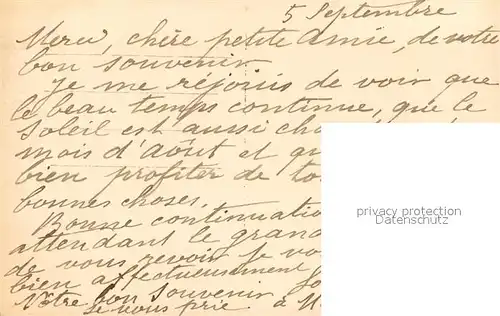 5 Septembre
Merci, chère petite Amie, de votre
bon souvenir.
Je me réjouis de voir que
le beau temps continue, que le
soleil est aussi cha
mois d'août et qu
bien profiter de to
bonnes choses.
Bonne continuatio
attendant le grand
de vous revoir je vo
bien affectueusement
Votre bon souvenir
s. vous prie à M
privacy protection